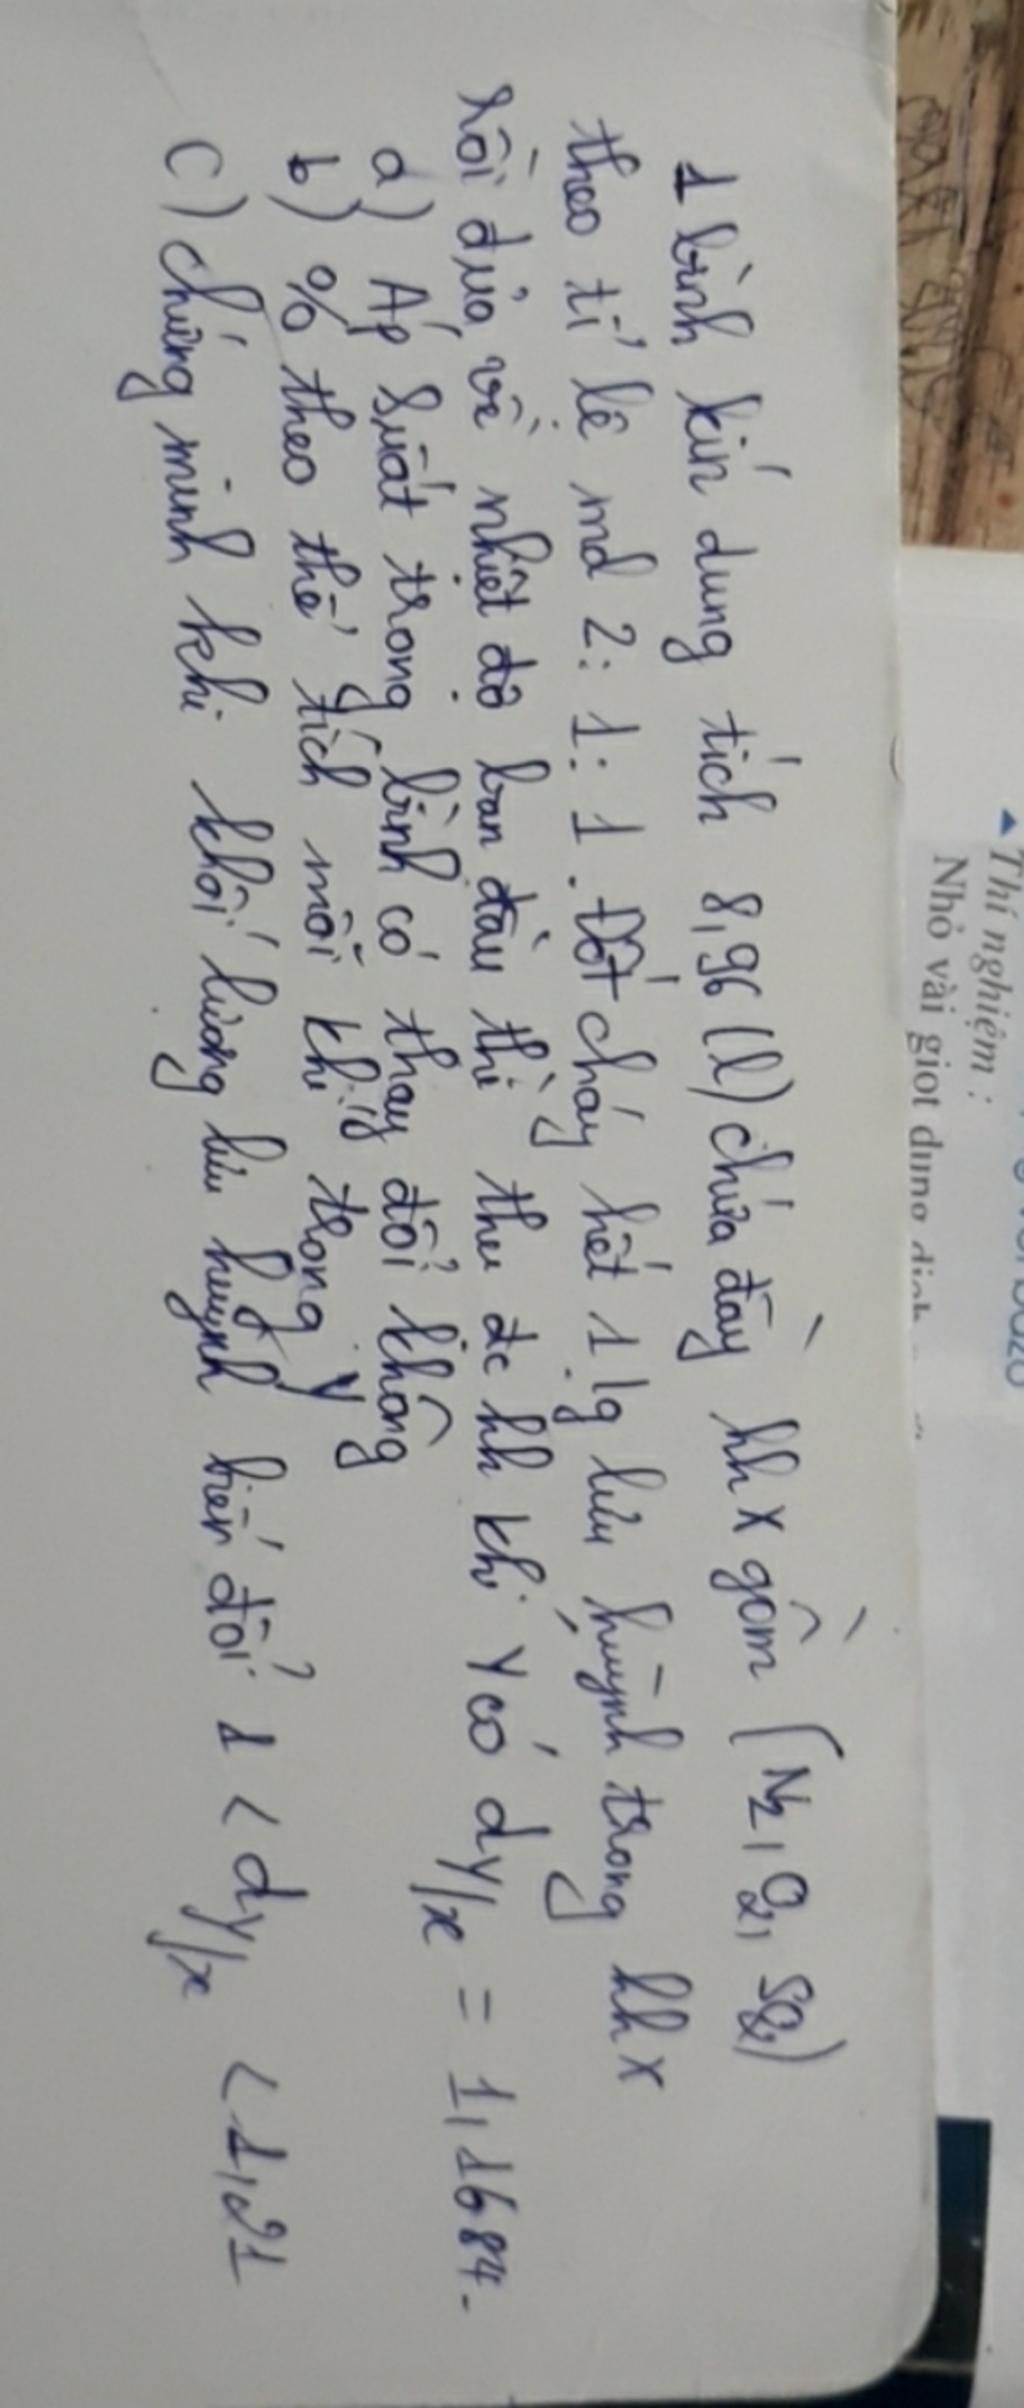 1 bình kín dung tích 8,96 (l) chứa đầy hh X gồm (N2, O2, SO2)
theo tỉ lệ mol 2:1:1. Đốt cháy hết 1 lg lưu huỳnh trong hh X
rồi đưa về nhiệt độ ban đầu thì thu đc hh khí Y có dY/x = 1,1684.
a) Áp suất trong bình có thay đổi không
b) % theo thể tích mỗi khí trong Y
c) chứng minh khi khối lượng lưu huỳnh biến đổi 1 < dY/x < 1,21
▲ Thí nghiệm :
Nhỏ vài giọt dung